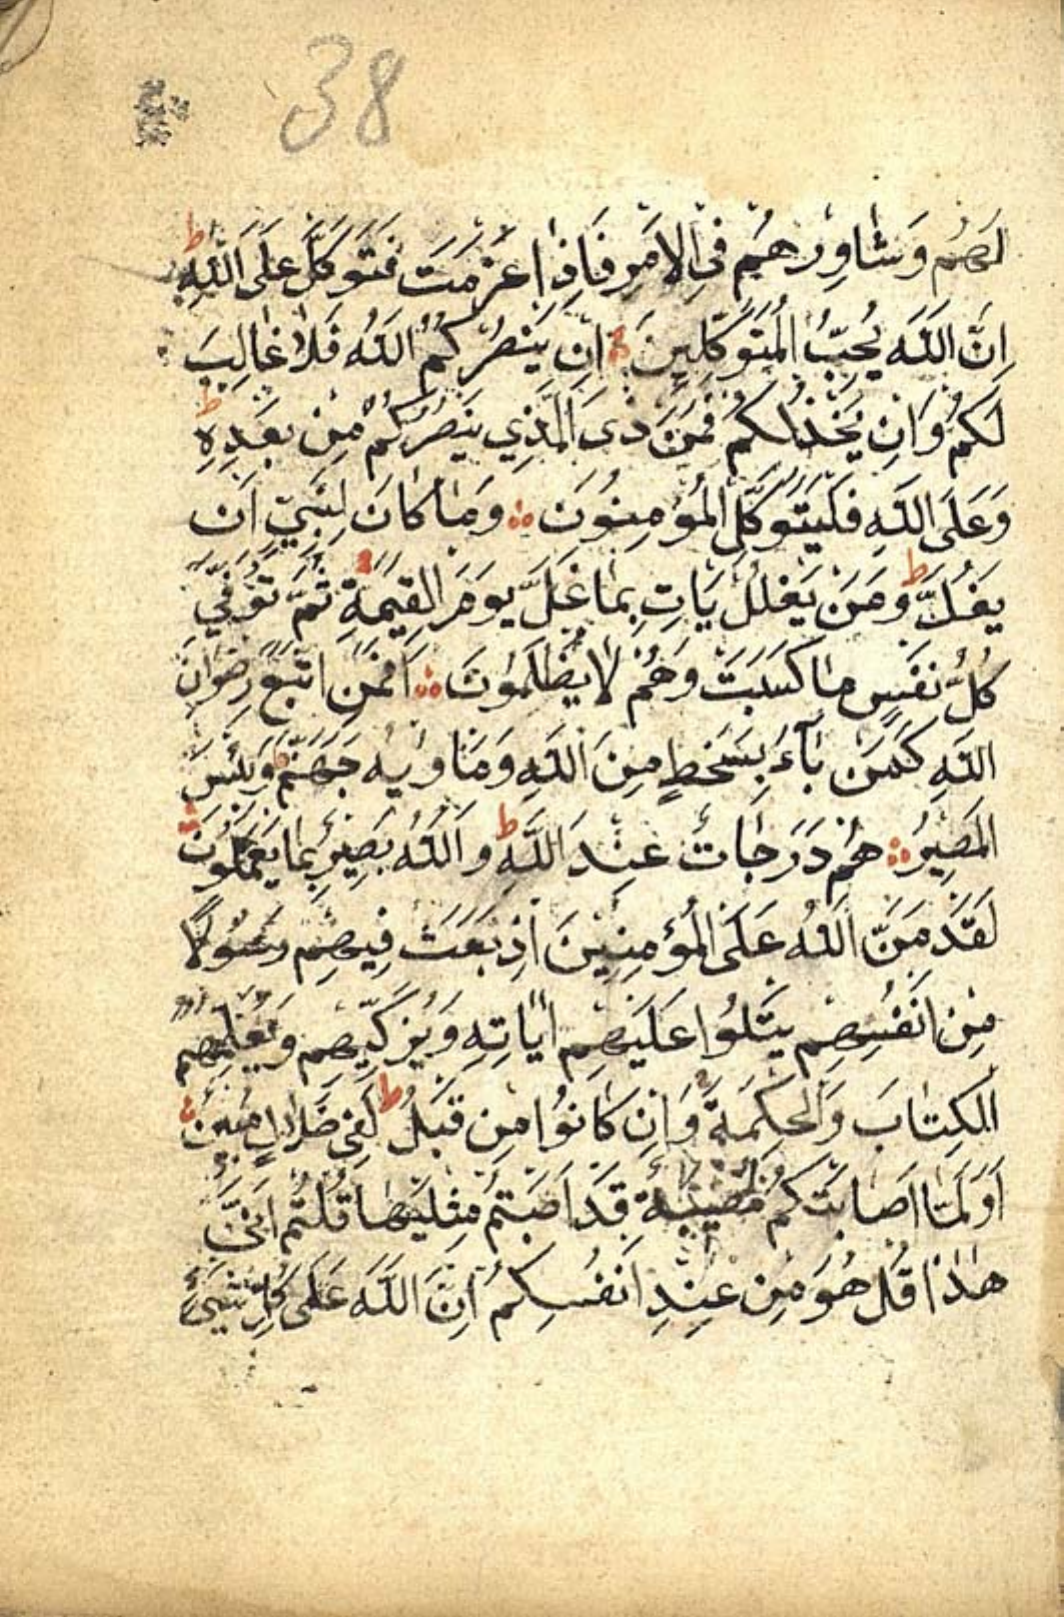 38
لَهُمْ وَشَاوِرْهُمْ فِي الْاَمْرِ فَاِذَا عَزَمْتَ فَتَوَكَّلْ عَلَى اللّٰهِ ط
اِنَّ اللّٰهَ يُحِبُّ الْمُتَوَكِّلِينَ اِنْ يَنْصُرْكُمُ اللّٰهُ فَلَا غَالِبَ
لَكُمْ وَاِنْ يَخْذُلْكُمْ فَمَنْ ذَا الَّذِي يَنْصُرُكُمْ مِنْ بَعْدِهِ ط
وَعَلَى اللّٰهِ فَلْيَتَوَكَّلِ الْمُؤْمِنُونَ وَمَا كَانَ لِنَبِيٍّ اَنْ
يَغُلَّ ط وَمَنْ يَغْلُلْ يَاْتِ بِمَا غَلَّ يَوْمَ الْقِيٰمَةِ ثُمَّ تُوَفّٰى
كُلُّ نَفْسٍ مَا كَسَبَتْ وَهُمْ لَا يُظْلَمُونَ اَفَمَنِ اتَّبَعَ رِضْوَانَ
اللّٰهِ كَمَنْ بَآءَ بِسَخَطٍ مِنَ اللّٰهِ وَمَأْوٰيهُ جَهَنَّمُ ط وَبِئْسَ
الْمَصِيرُ هُمْ دَرَجَاتٌ عِنْدَ اللّٰهِ ط وَاللّٰهُ بَصِيرٌ بِمَا يَعْمَلُونَ
لَقَدْ مَنَّ اللّٰهُ عَلَى الْمُؤْمِنِينَ اِذْ بَعَثَ فِيهِمْ رَسُولًا
مِنْ اَنْفُسِهِمْ يَتْلُوا عَلَيْهِمْ اٰيَاتِهِ وَيُزَكِّيهِمْ وَيُعَلِّمُهُمُ
الْكِتَابَ وَالْحِكْمَةَ وَاِنْ كَانُوا مِنْ قَبْلُ ط لَفِي ضَلَالٍ مُبِينٍ
اَوَلَمَّا اَصَابَتْكُمْ مُصِيبَةٌ قَدْ اَصَبْتُمْ مِثْلَيْهَا قُلْتُمْ اَنّٰى
هٰذَا قُلْ هُوَ مِنْ عِنْدِ اَنْفُسِكُمْ اِنَّ اللّٰهَ عَلَى كُلِّ شَيْءٍ